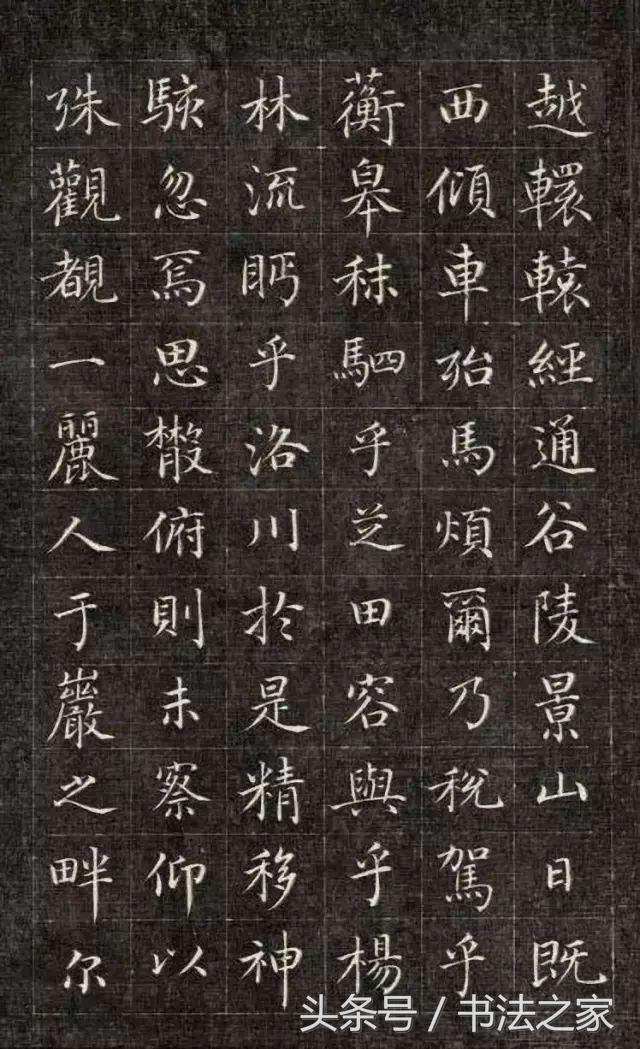 越轘轅經通谷陵景山日既
西傾車殆馬煩爾乃稅駕乎
蘅皋秣駟乎芝田容與乎楊
林流眄乎洛川於是精移神
駭忽焉思散俯則未察仰以
殊觀覩一麗人于巖之畔尔
头条号 / 书法之家